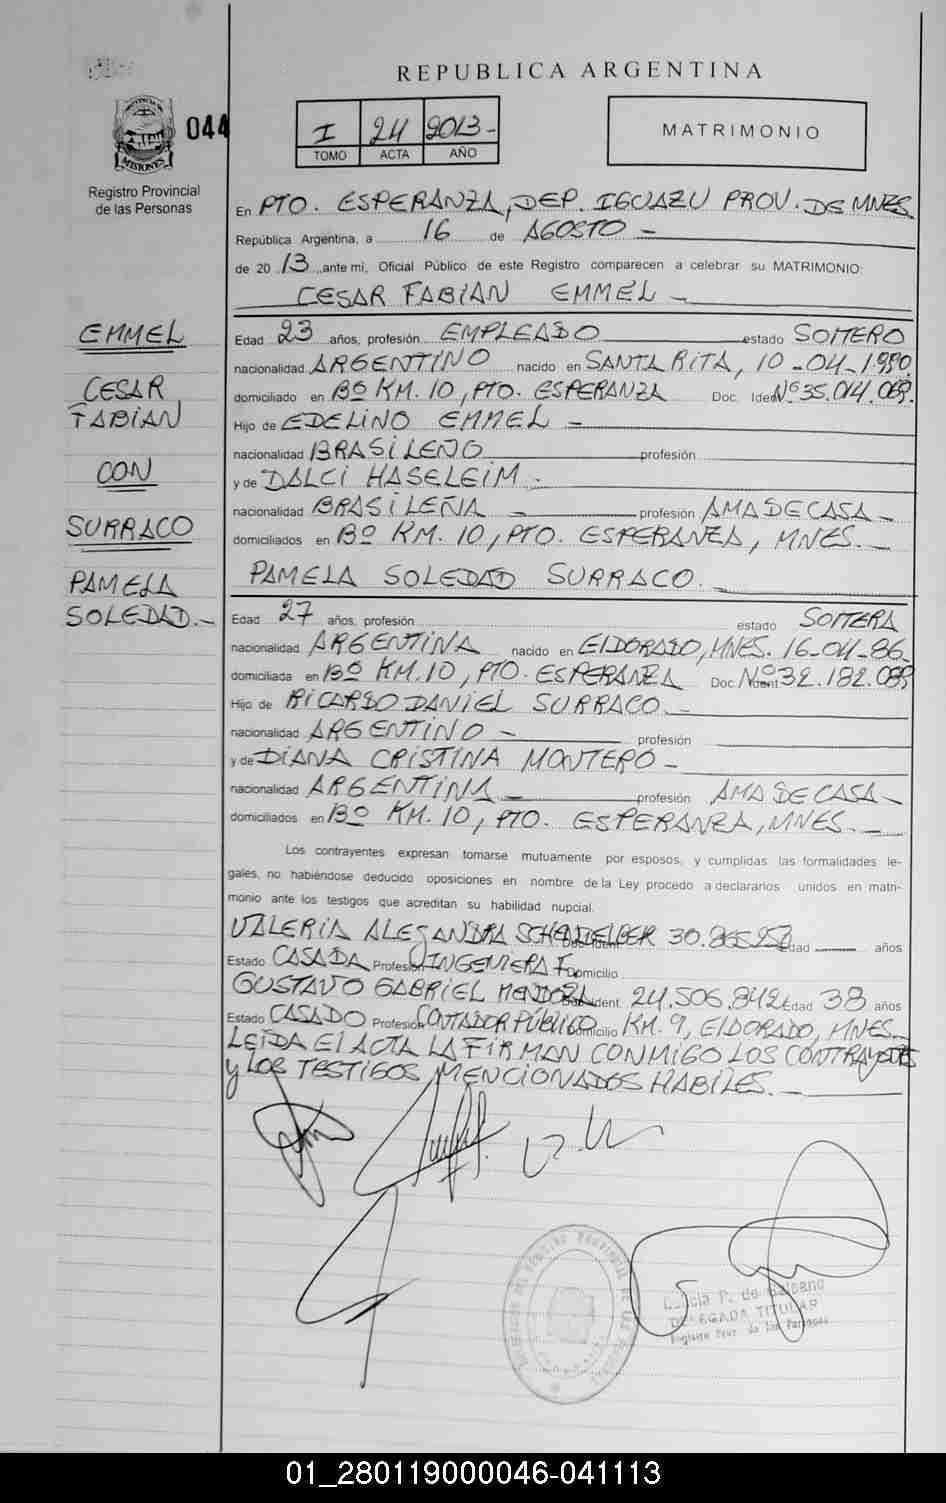 REPUBLICA ARGENTINA
PROVINCIA DE
MISIONES
044
Registro Provincial
de las Personas
I 24 2013-
TOMO ACTA AÑO
MATRIMONIO
En PTO. ESPERANZA, DEP. IGUAZU PROV. DE MNES.
República Argentina, a 16 de AGOSTO -
de 20 13 , ante mi, Oficial Público de este Registro comparecen a celebrar su MATRIMONIO:
CESAR FABIAN EMMEL -
EMMEL
CESAR
FABIAN
CON
SURRACO
PAMELA
SOLEDAD.-
Edad 23 años, profesión EMPLEADO estado SOLTERO
nacionalidad ARGENTINO nacido en SANTA RITA, 10-04-1990.
domiciliado en Bº KM. 10, PTO. ESPERANZA Doc. Iden Nº 35.014.069.
Hijo de EDELINO EMMEL -
nacionalidad BRASILEÑO profesión
y de DALCI HASELEIM -
nacionalidad BRASILEÑA - profesión AMA DE CASA -
domiciliados en Bº KM. 10, PTO. ESPERANZA, MNES. -
PAMELA SOLEDAD SURRACO. -
Edad 27 años, profesión estado SOLTERA
nacionalidad ARGENTINA nacido en ELDORADO, MNES. 16-04-86-
domiciliada en Bº KM. 10, PTO. ESPERANZA Doc. Ident Nº 32.182.089
Hijo de RICARDO DANIEL SURRACO. -
nacionalidad ARGENTINO - profesión
y de DIANA CRISTINA MONTERO -
nacionalidad ARGENTINA - profesión AMA DE CASA -
domiciliados en Bº KM. 10, PTO. ESPERANZA, MNES. -
Los contrayentes expresan tomarse mutuamente por esposos, y cumplidas las formalidades le-
gales, no habiéndose deducido oposiciones en nombre de la Ley procedo a declararlos unidos en matri-
monio ante los testigos que acreditan su habilidad nupcial.
VALERIA ALEJANDRA Doc. Ident. Edad años
Estado CASADA Profesión INGENIERA F. Domicilio
GUSTAVO GABRIEL MENDOZA Doc. Ident. 24.506.842 Edad 38 años
Estado CASADO Profesión CONTADOR PÚBLICO Domicilio KM. 9, ELDORADO, MNES.
LEIDA EL ACTA LA FIRMAN CONMIGO LOS CONTRAYENTES
y LOS TESTIGOS MENCIONADOS HABILES. -
P. de
DELEGADA TITULAR
Registro Prov. de las Personas
01_280119000046-041113